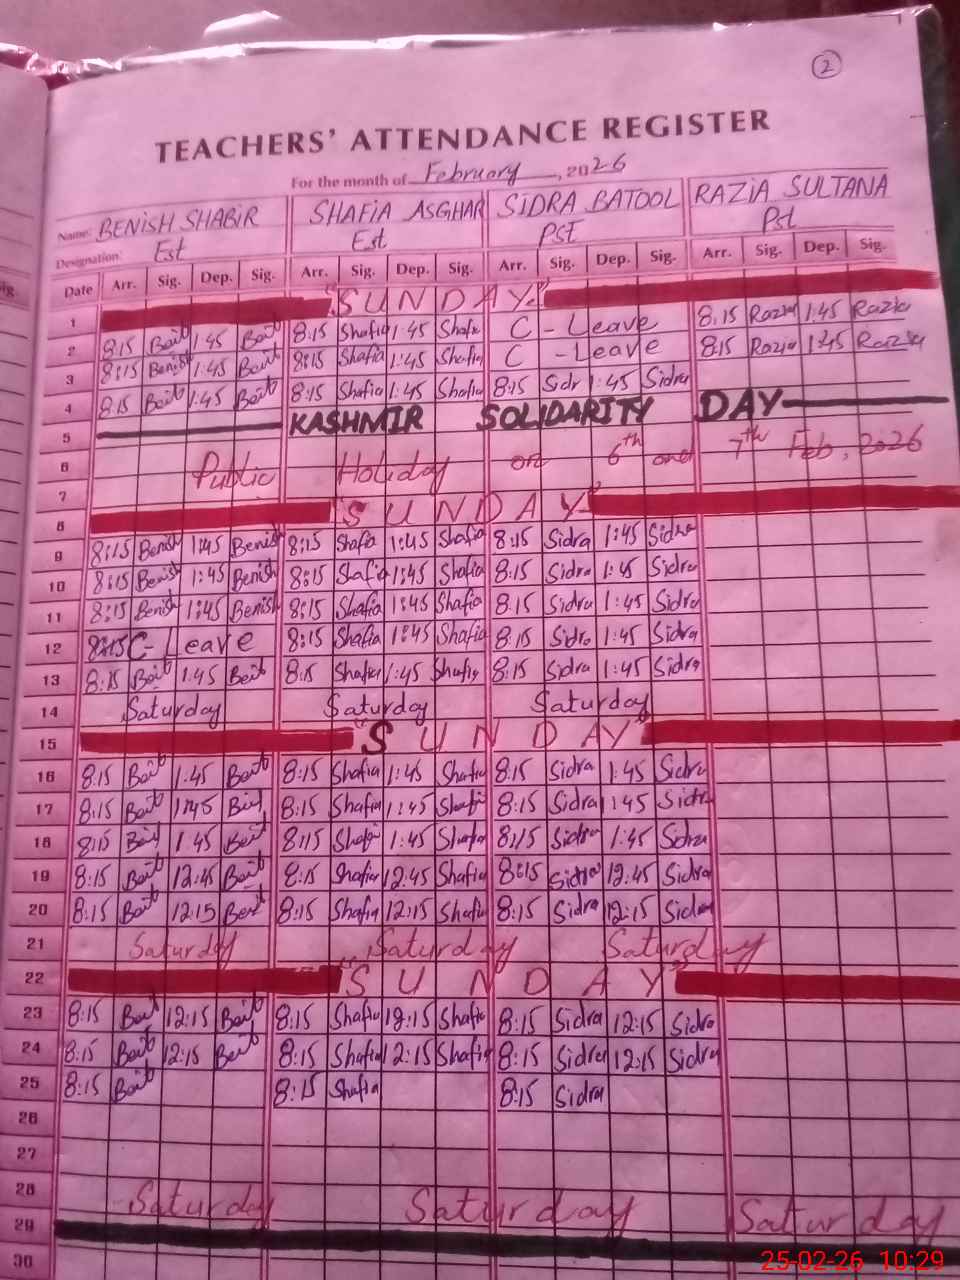 2
TEACHERS' ATTENDANCE REGISTER
For the month of February, 2026
Name: BENISH SHABIR SHAFIA ASGHAR SIDRA BATOOL RAZIA SULTANA
Designation: Est Est PST Pst
Date Arr. Sig. Dep. Sig. Arr. Sig. Dep. Sig. Arr. Sig. Dep. Sig. Arr. Sig. Dep. Sig.
1 "SUNDAY"
2 8:15 1:45 8:15 Shafia 1:45 Shafia C - Leave 8:15 Razia 1:45 Razia
3 8:15 Benish 1:45 8:15 Shafia 1:45 Shafia C - Leave 8:15 Razia 1:45 Razia
4 8:15 1:45 8:15 Shafia 1:45 Shafia 8:15 Sidr 1:45 Sidra
5 KASHMIR SOLIDARITY DAY
6 Public Holiday on 6th and 7th Feb, 2026
7
8 "SUNDAY"
9 8:15 Benish 1:45 Benish 8:15 Shafia 1:45 Shafia 8:15 Sidra 1:45 Sidra
10 8:15 Benish 1:45 Benish 8:15 Shafia 1:45 Shafia 8:15 Sidra 1:45 Sidra
11 8:15 Benish 1:45 Benish 8:15 Shafia 1:45 Shafia 8:15 Sidra 1:45 Sidra
12 8:15 C- Leave 8:15 Shafia 1:45 Shafia 8:15 Sidra 1:45 Sidra
13 8:15 1:45 8:15 Shafia 1:45 Shafia 8:15 Sidra 1:45 Sidra
14 Saturday Saturday Saturday
15 "SUNDAY"
16 8:15 1:45 8:15 Shafia 1:45 Shafia 8:15 Sidra 1:45 Sidra
17 8:15 1:45 8:15 Shafia 1:45 Shafia 8:15 Sidra 1:45 Sidra
18 8:15 1:45 8:15 Shafia 1:45 Shafia 8:15 Sidra 1:45 Sidra
19 8:15 12:45 8:15 Shafia 12:45 Shafia 8:15 Sidra 12:45 Sidra
20 8:15 12:15 8:15 Shafia 12:15 Shafia 8:15 Sidra 12:15 Sidra
21 Saturday Saturday Saturday
22 "SUNDAY"
23 8:15 12:15 8:15 Shafia 12:15 Shafia 8:15 Sidra 12:15 Sidra
24 8:15 12:15 8:15 Shafia 12:15 Shafia 8:15 Sidra 12:15 Sidra
25 8:15 8:15 Shafia 8:15 Sidra
26
27
28 Saturday Saturday Saturday
29
30
25-02-26 10:29